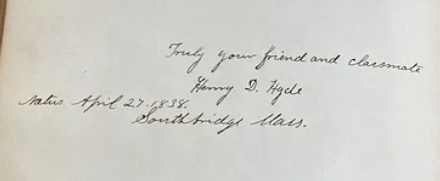 Truly your friend and classmate
Henry D. Hyde
Natus April 27. 1838.
Southbridge Mass.